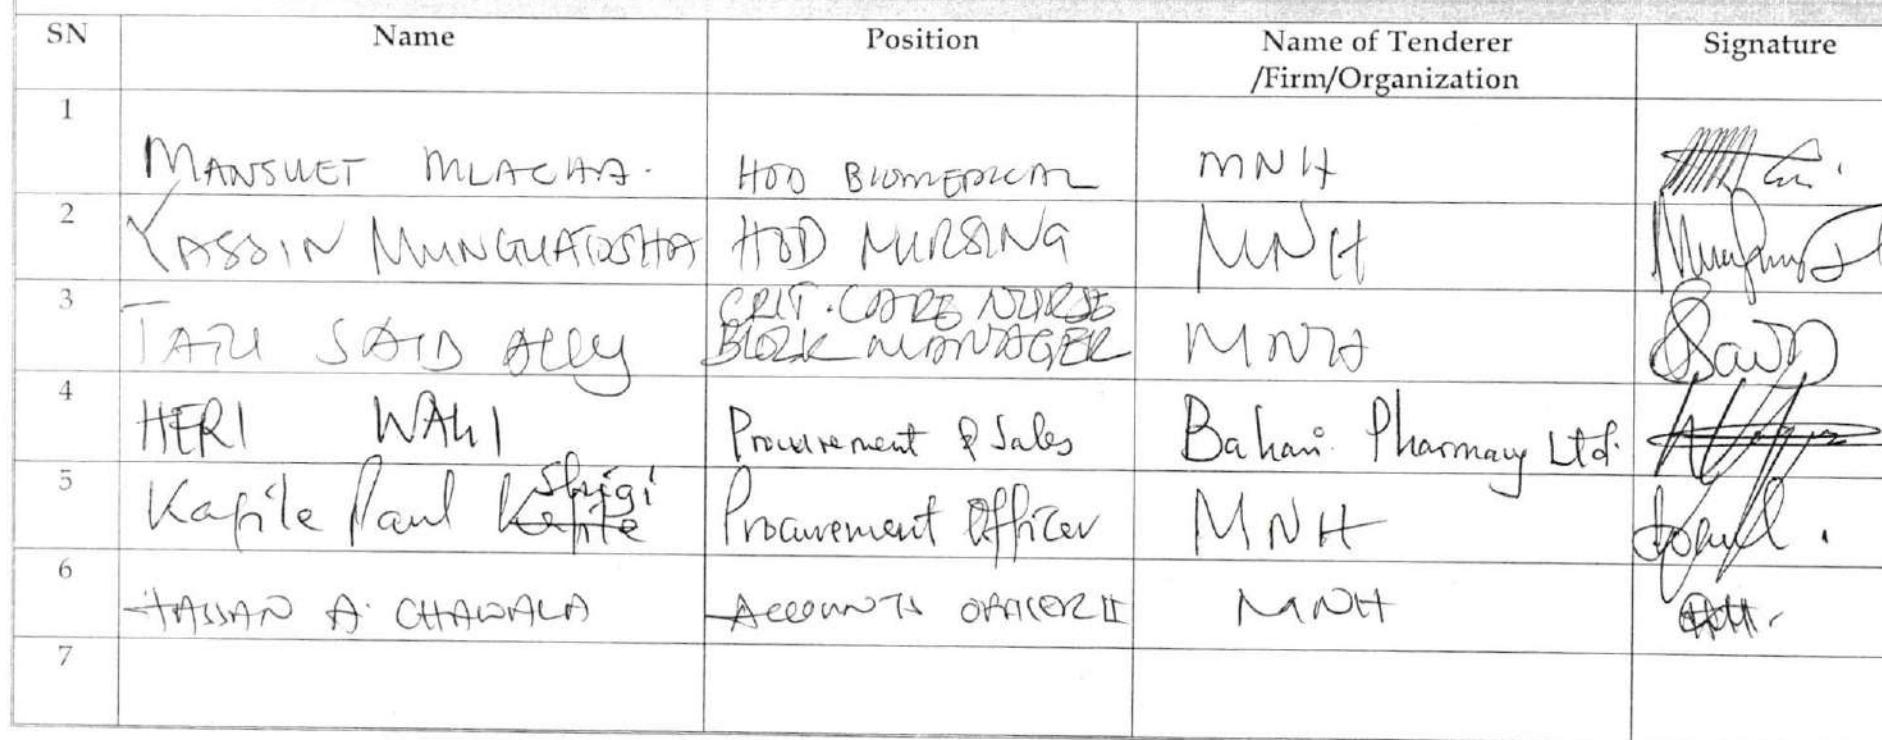 SN Name Position Name of Tenderer Signature
/Firm/Organization
1
MANSUET MLACHA. HOD BIOMEDICAL MNH
2
YASSIN MUNGUATOSHA HOD NURSING MNH
3
CRIT. CARE NURSE
TATU SAID ALLY BLOCK MANAGER MNH
4
HERI WALI Procurement & Sales Bahari Pharmacy Ltd.
5
Shigi
Kapile Paul Kapile Procurement Officer MNH
6
HASSAN A. CHAWALA ACCOUNTS OFFICER II MNH
7